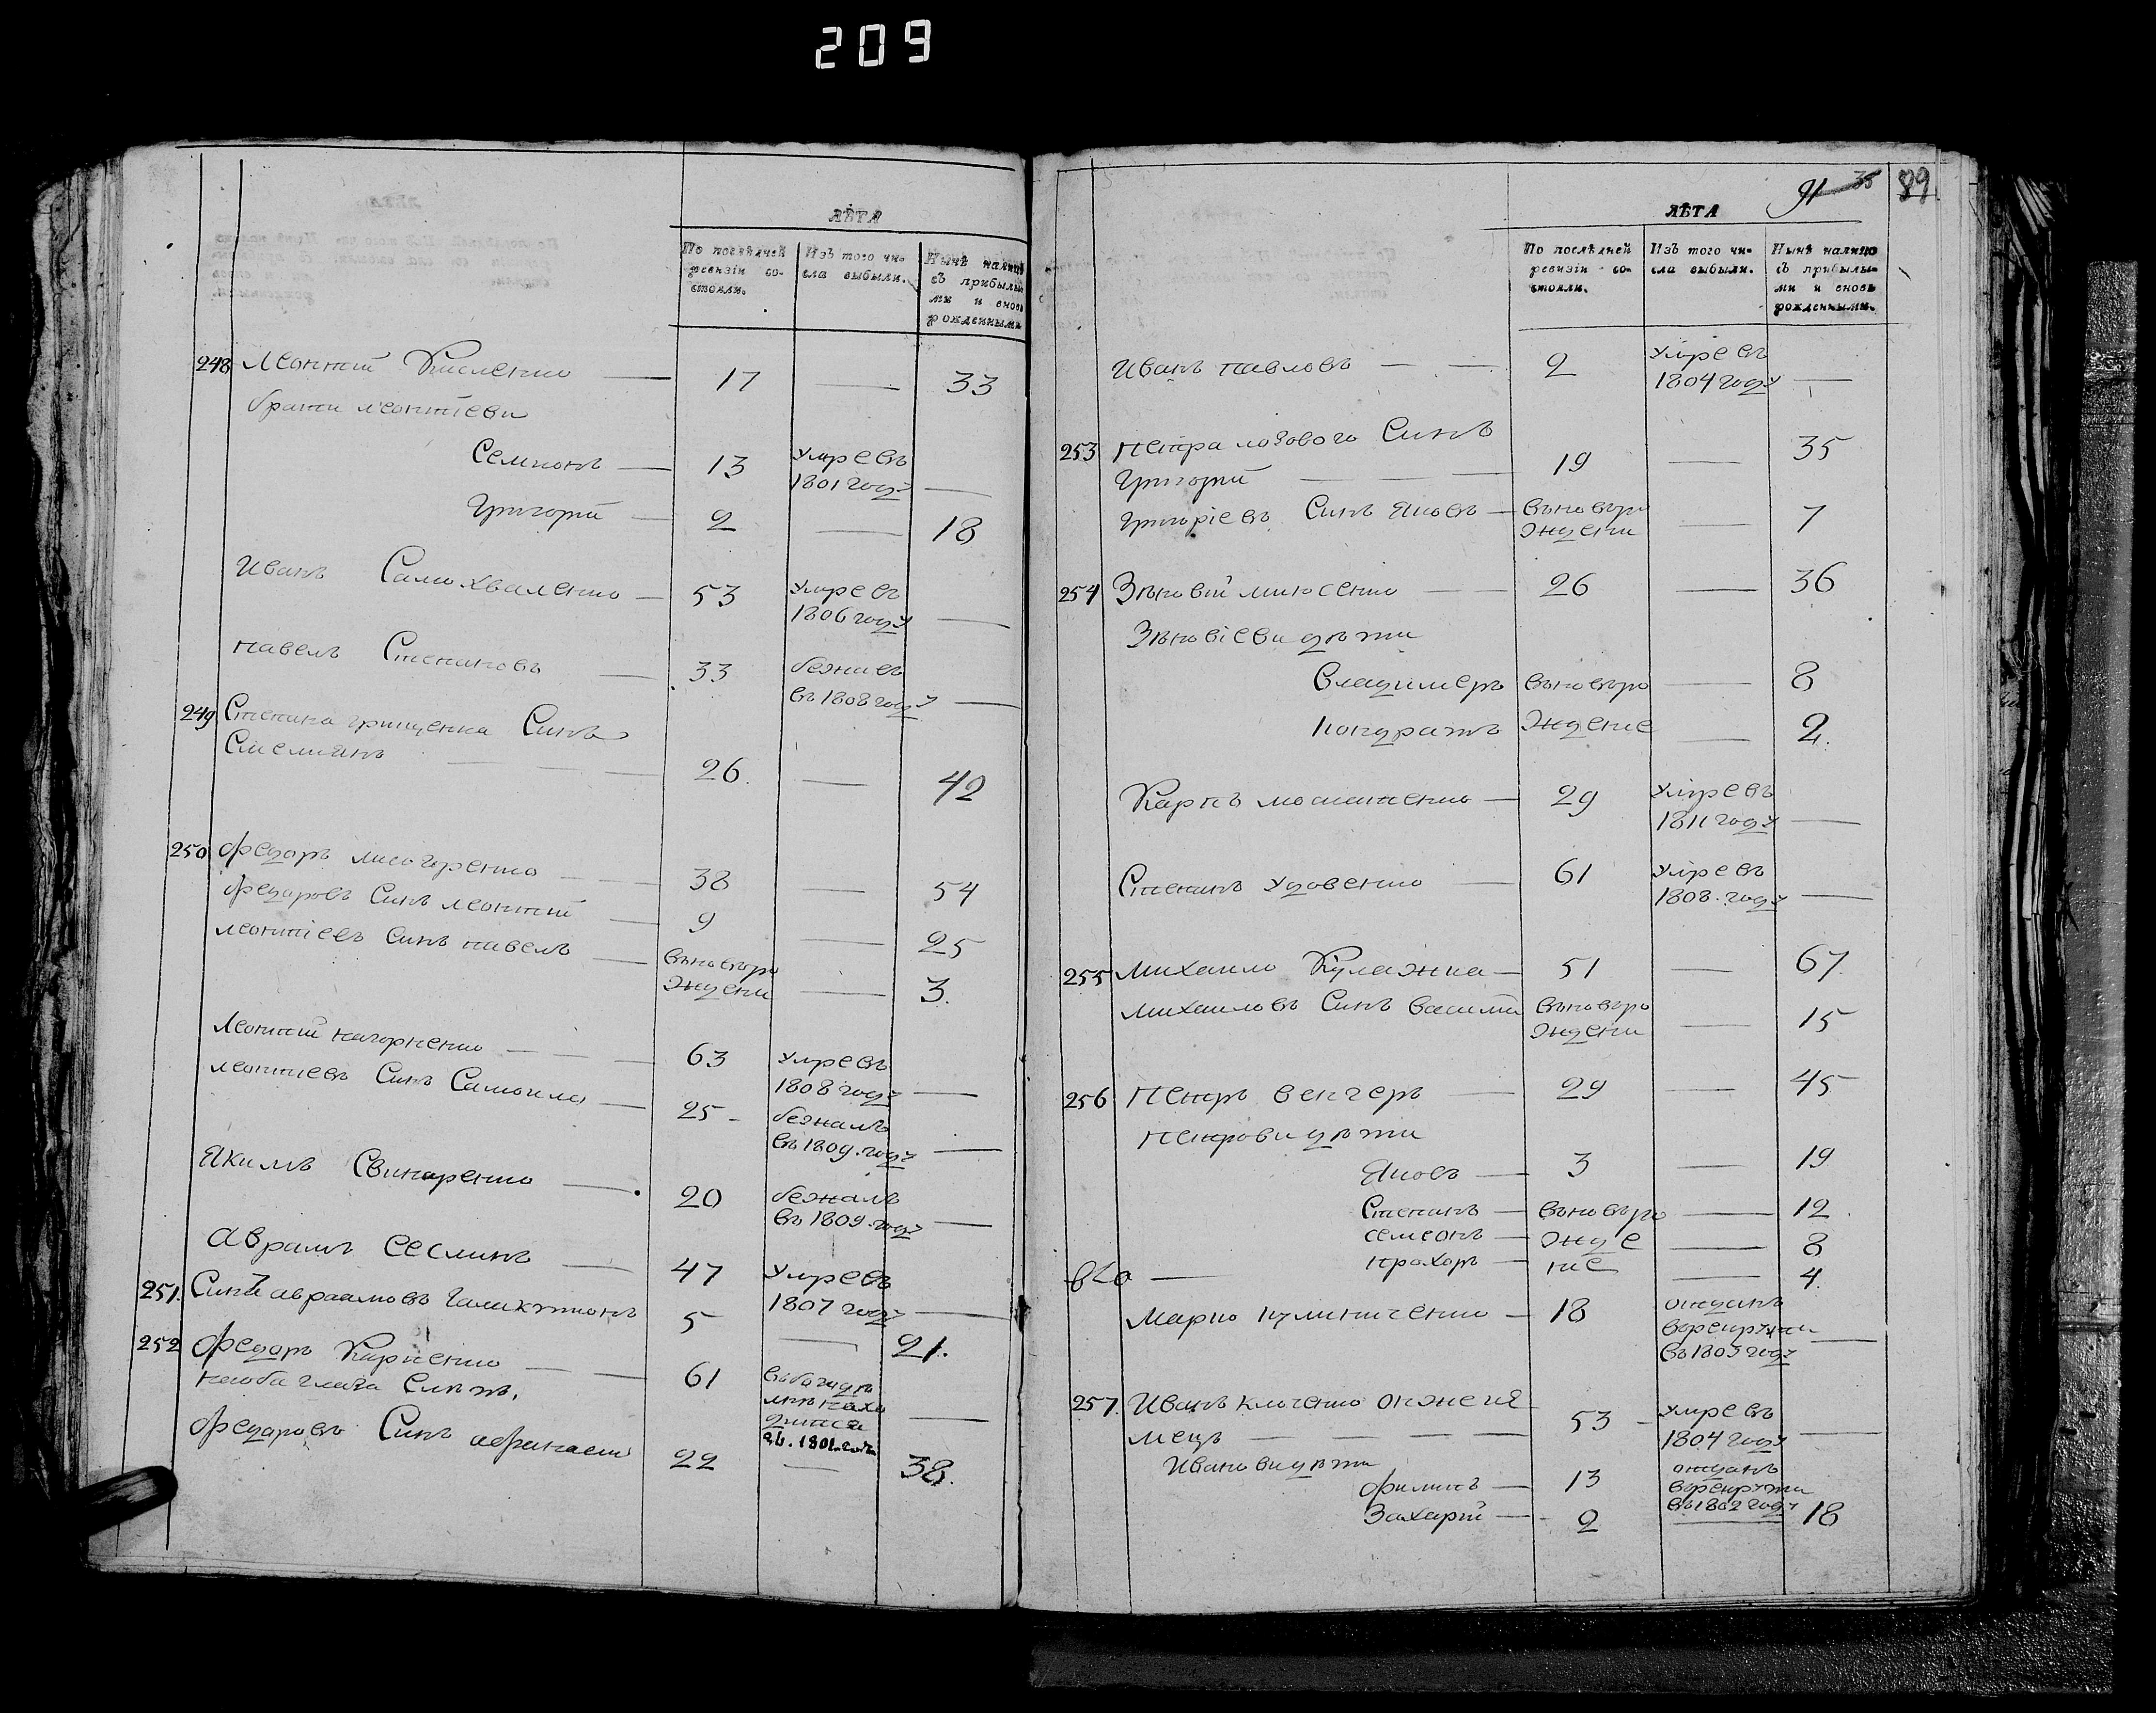 209
ЛѢТА
По послѣдней ревизіи со- стояли.
Изъ того чи- сла выбыли.
Нынѣ налицо съ прибылы- ми и вновь рожденными.
248 Леонтий Кисленко — 17 — 33
брати леонтіеви
Семионъ — 13 умре въ 1801 году —
Григорий — 2 — 18
Иванъ Самохваленко — 53 умре въ 1806 году —
павелъ Степановъ — 33 бежалъ въ 1808 году —
249 Степана грищенка Синъ
Емелиянъ — 26. — 42
250 Федоръ лисогоренко — 38 — 54
Федоровъ Синъ леонтий — 9 — 25
леонтіевъ Синъ павелъ — вьново ро жденни — 3.
Леонтий нагорненко — 63 умре въ 1808 году —
леонтиевъ Синъ Самоило — 25 - бежалъ въ 1809. году —
Якимъ Свинаренко — 20 бежалъ въ 1809. году —
Аврамъ — 47 умре въ 1807 году —
251. Синъ авраамовъ — 5 — 21.
252 Федоръ Карпенко — 61
Федоровъ Синъ афанасий 22 — 38.
91 35
89
ЛѢТА
По послѣдней ревизіи со- стояли.
Изъ того чи- сла выбыли.
Нынѣ налицо съ прибылы- ми и вновь рожденными.
Иванъ павловъ — — 2 умре въ 1804 году —
253 петра лозового Синъ
Григорий — — 19 — 35
Григоріевъ Синъ Яковъ — вьново ро жденни — 7
254 Зѣновий — 26 — 36
Зѣновіеви дѣти
Владимеръ вьново ро — 8
кондратъ ждение — 2.
Карпъ — 29 умре въ 1811 году —
Степанъ удовенко — 61 умре въ 1808. году —
255 Михаило Кулажка — 51 — 67.
Михаиловъ Синъ василий вьново ро жденни — 15
256 Петръ венгеръ — 29 — 45
петрови дѣти
Яковъ — 3 — 19
Степанъ — вьново ро — 12.
семеонъ — жде — 8
прохоръ — ние — 4.
Марко кулиниченко — 18 отданъ в рекруты въ 1805 году —
257. Иванъ клоченко
мецъ — — — — 53 - умре въ 1804 году —
Иванови дѣти
Филипъ — 13 отданъ в рекруты въ 1802 году
Захарий — 2 — 18